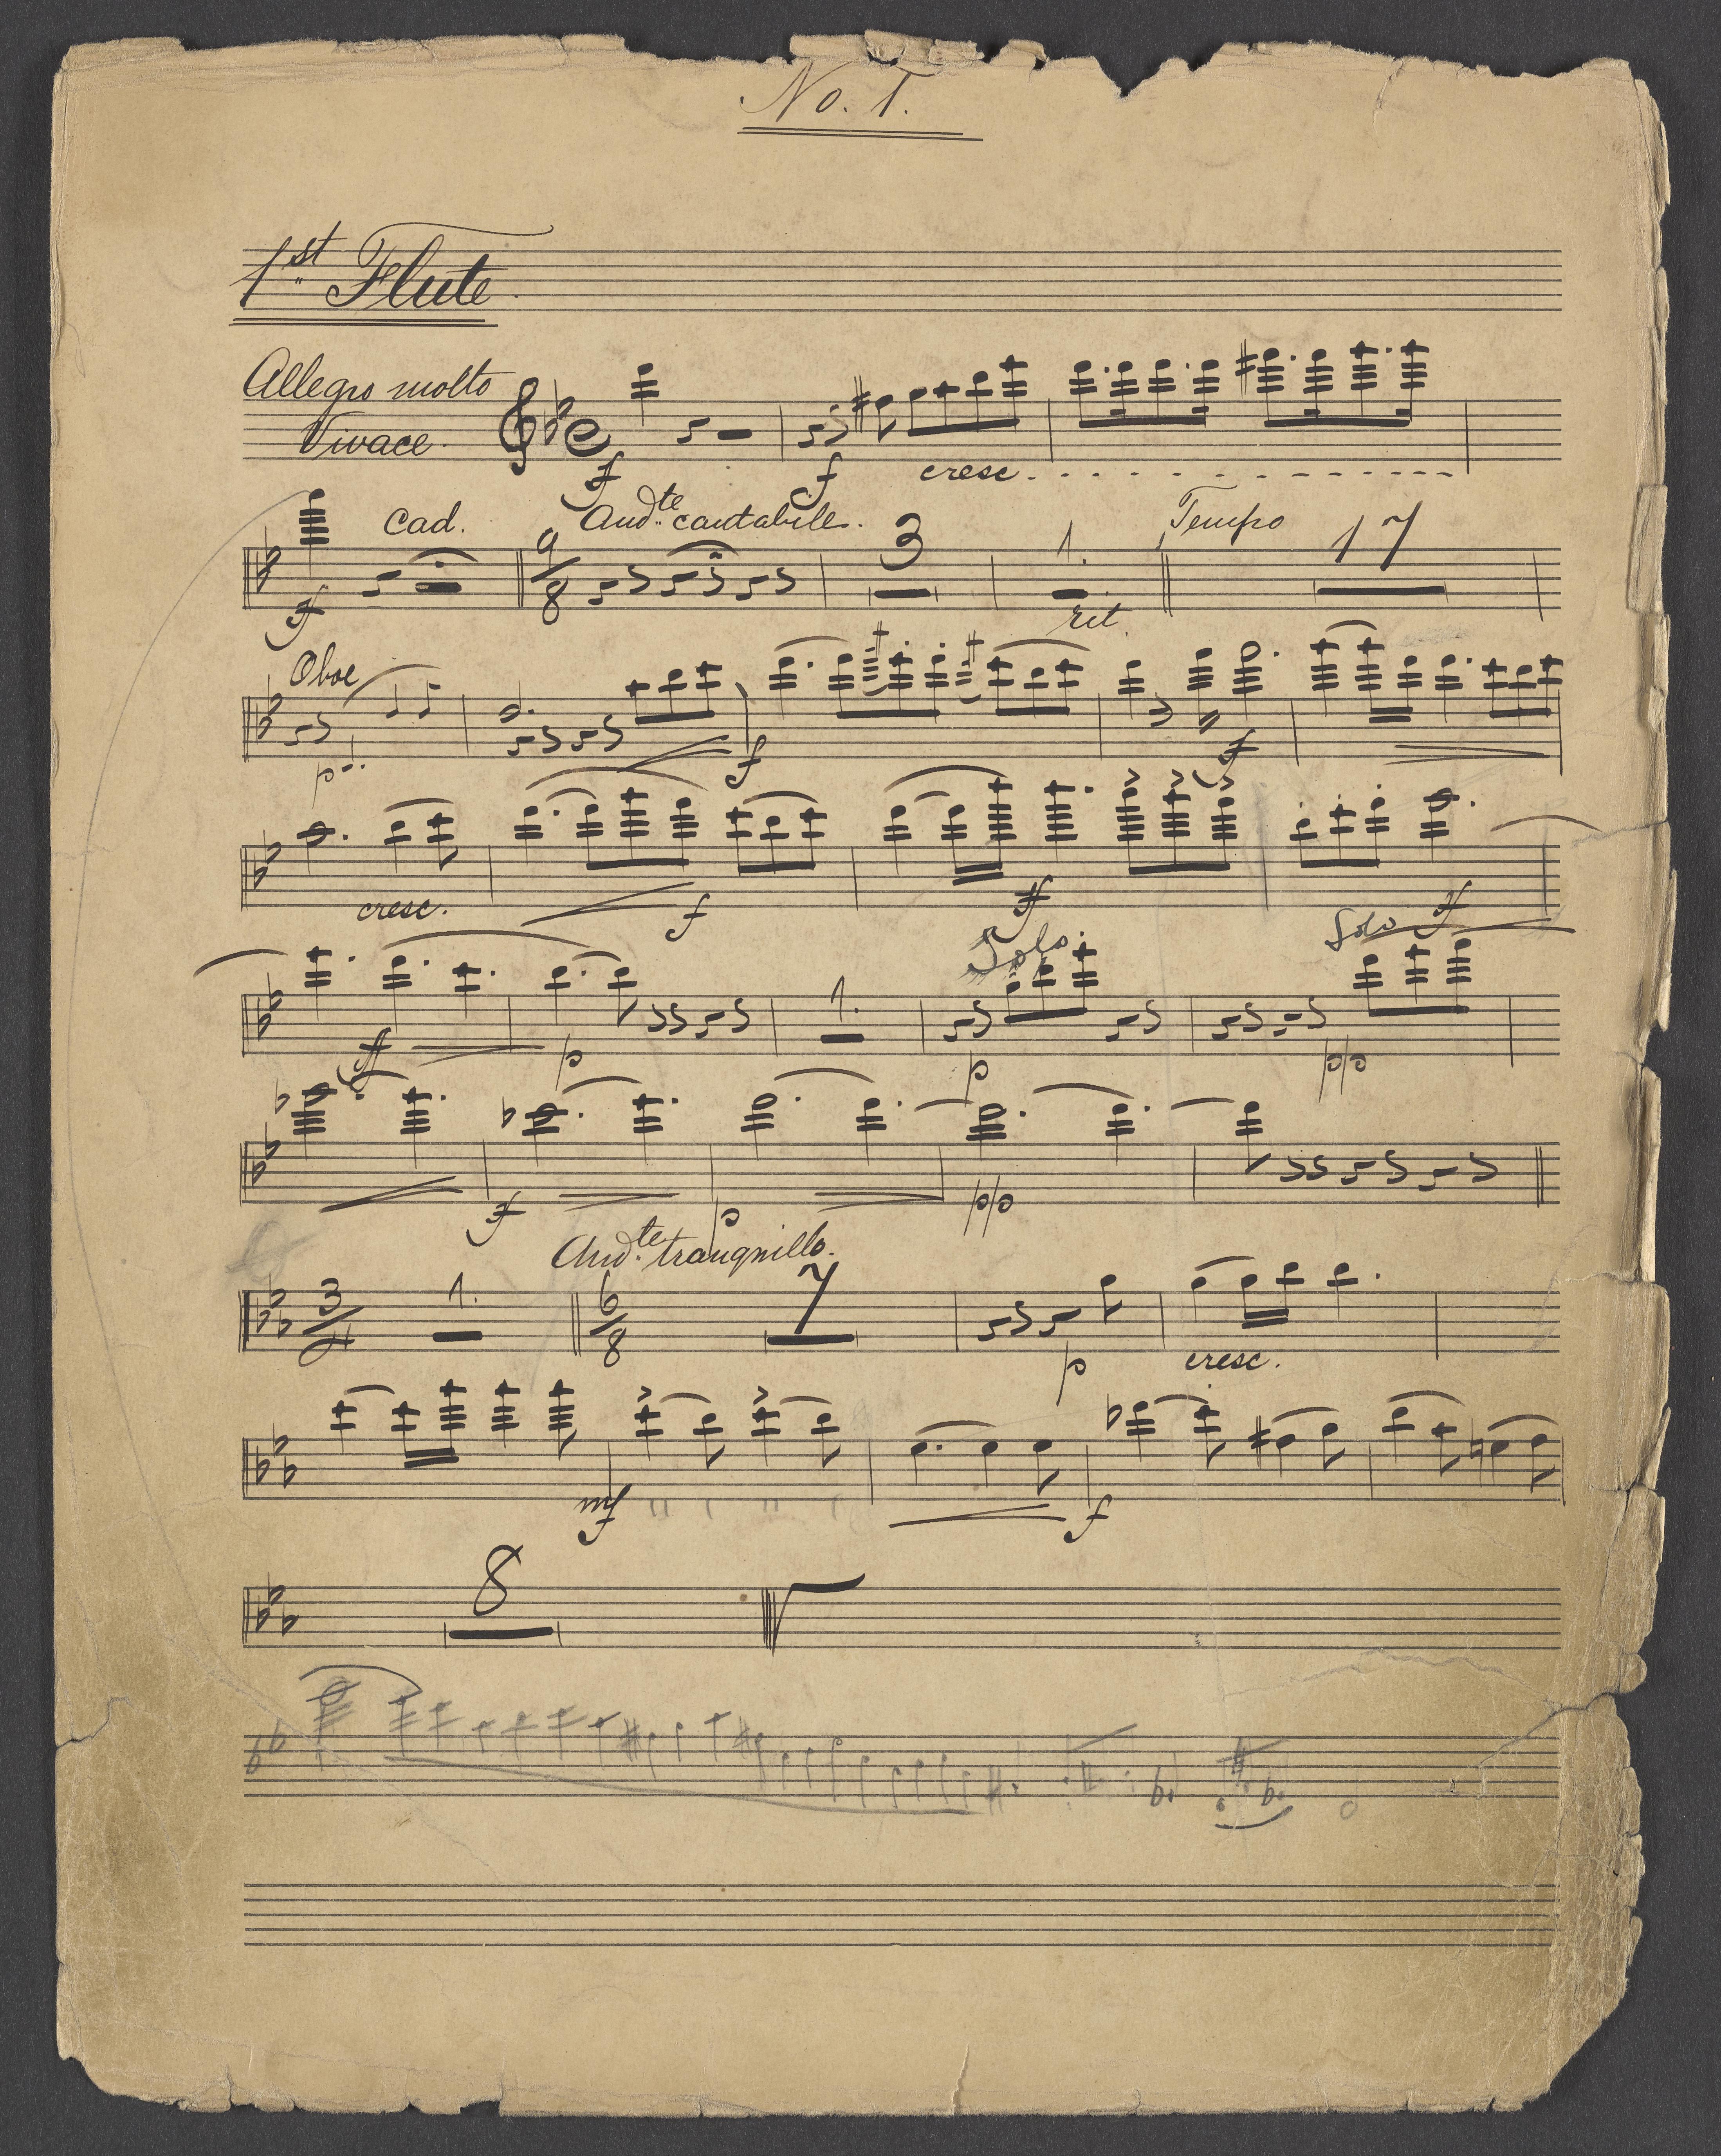 No. 1.
1st Flute
Allegro molto
Vivace.
f f cresc.
Cad. Andte cantabile. 3 1. Tempo 17
9/8
ff rit.
Oboe
p f ff
cresc. f ff ff
Solo. Solo
1.
ff p p pp
f p pp
Andte tranquillo.
3/2 1. 6/8 7
p cresc.
mf f
8